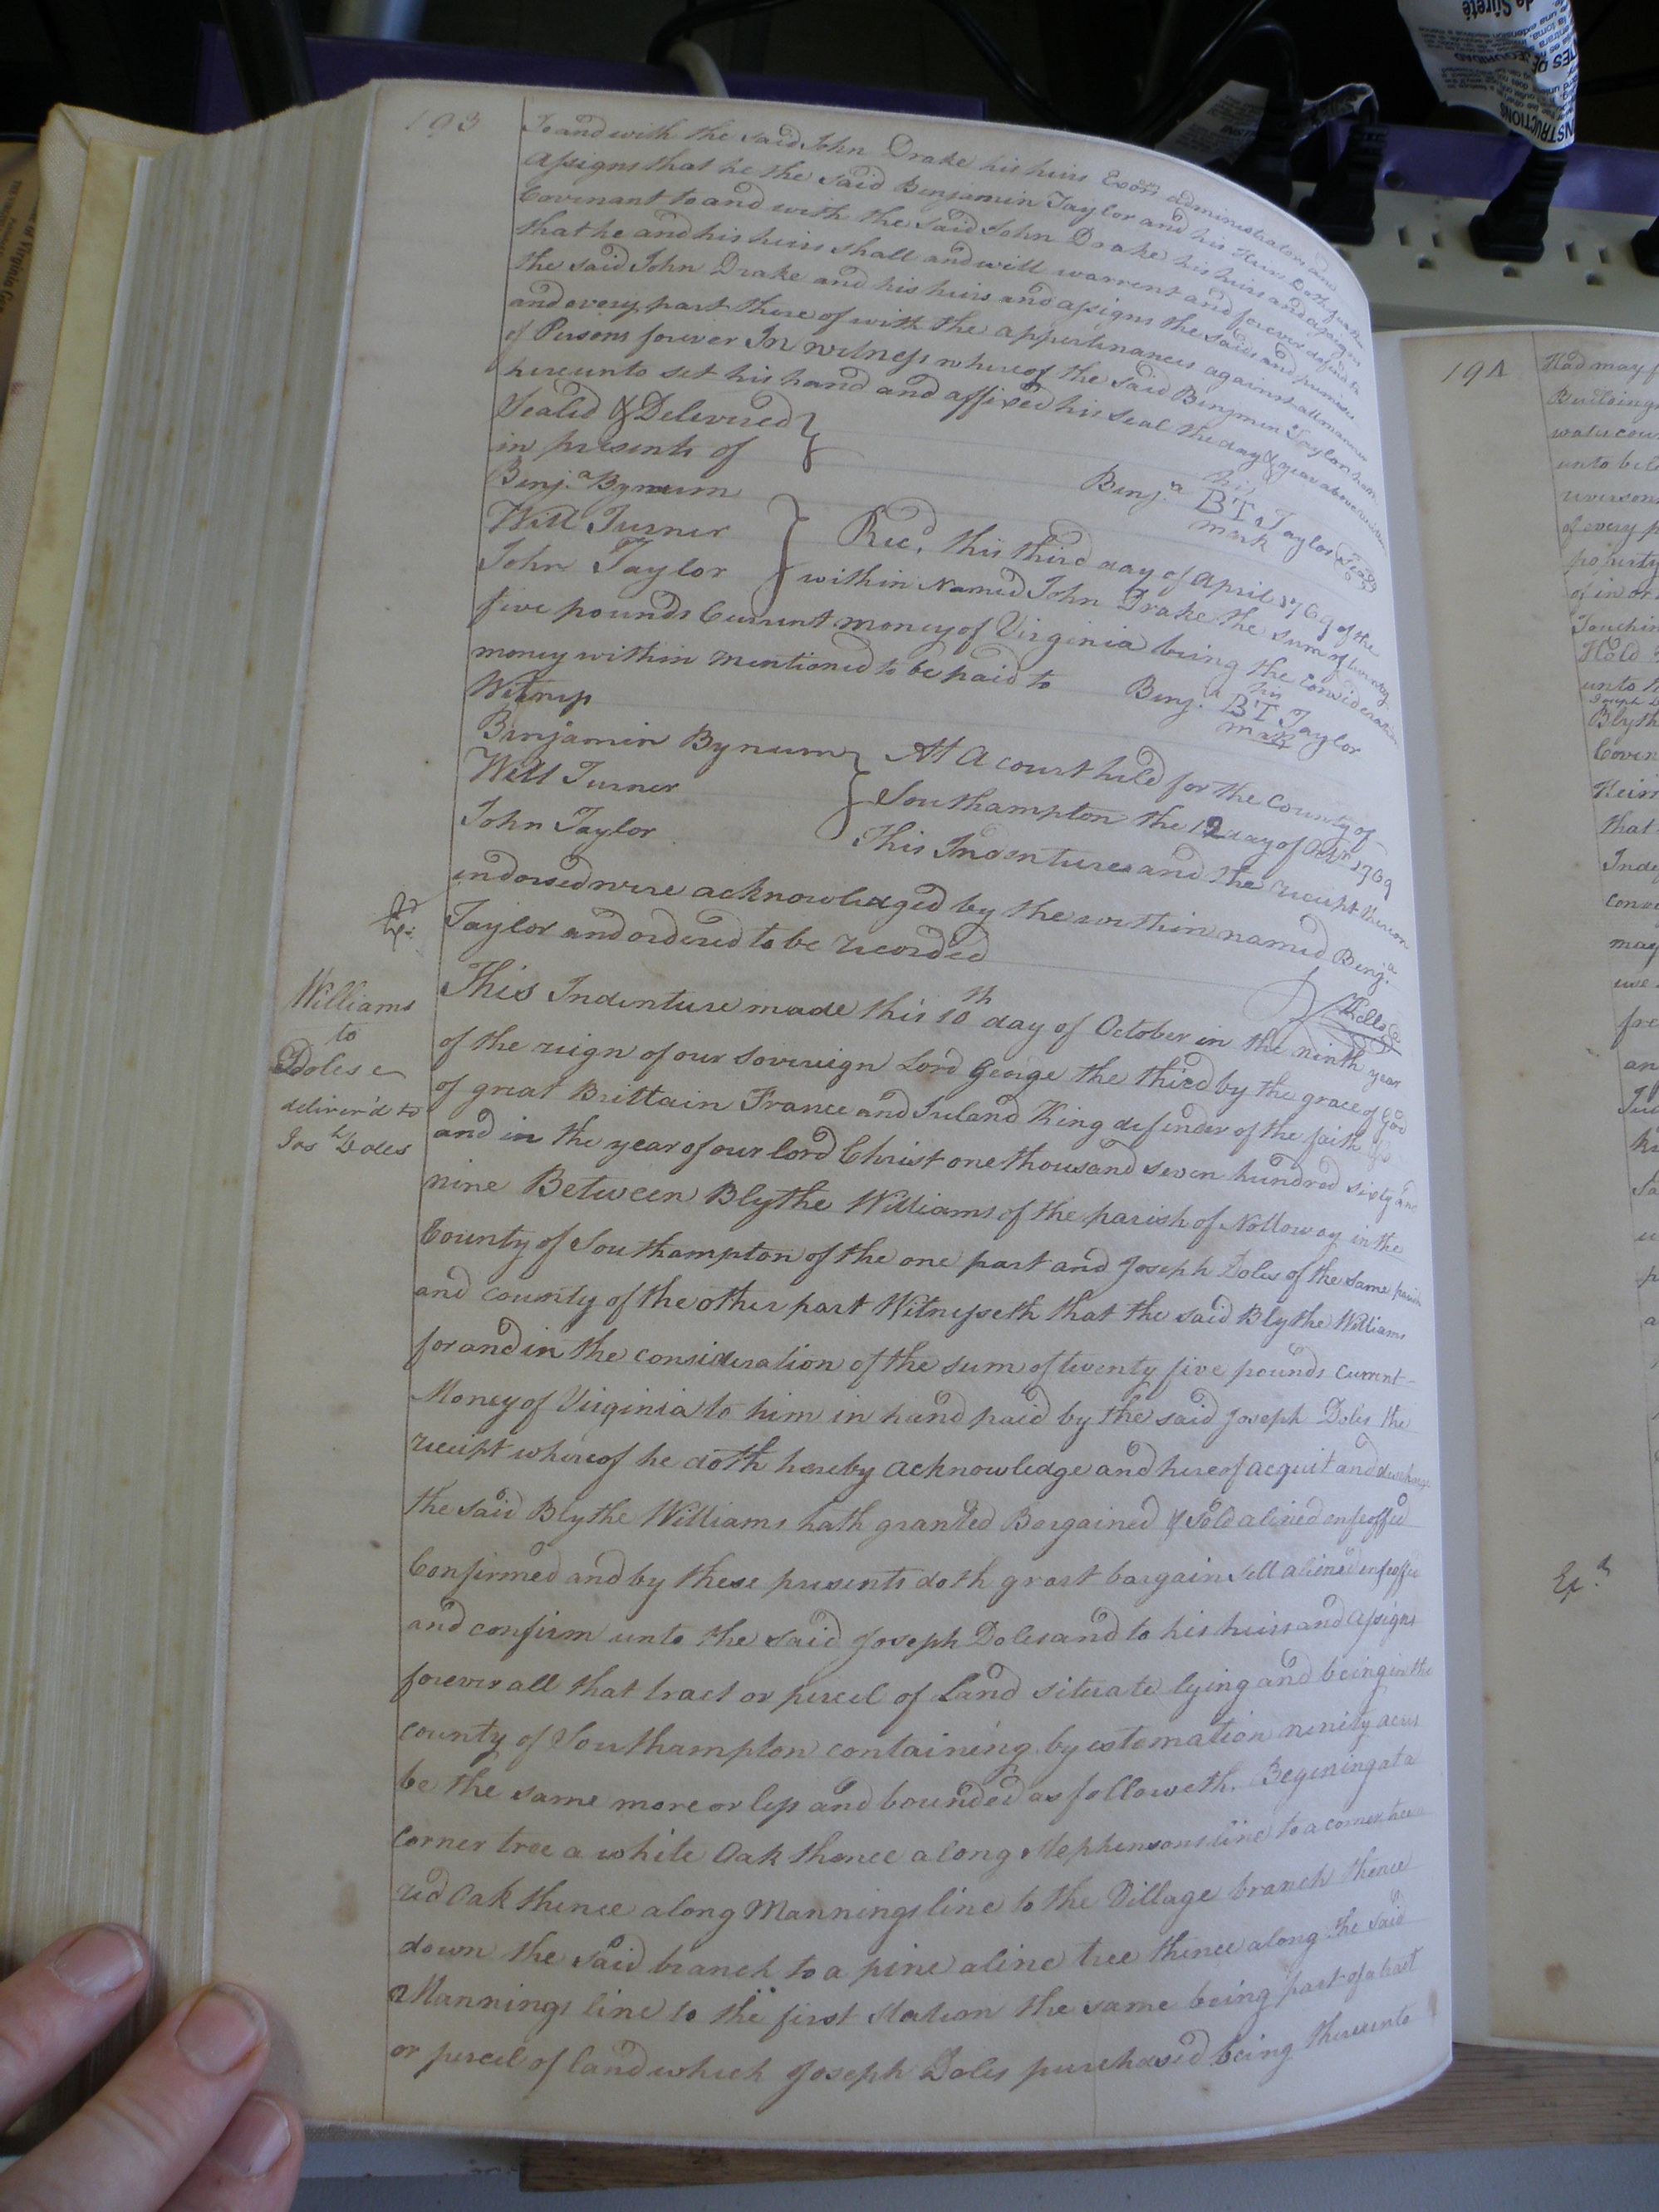 193
To and with the said John Drake his heirs Exors administrators and
Assigns that he the said Benjamin Taylor and his Heirs Doth further
Covenant to and with the said John Drake his heirs and assigns
that he and his heirs shall and will warrent and forever defend to
the said John Drake and his heirs and assigns the said Land premises
and every part there of with the appertinances against all manner
of Persons forever In witness whereof the said Benjmen Taylor hath
hereunto set his hand and affixed his seal the day & year above written
Sealed & Delivered
in presents of
Benj.a Bynum
Will Turner
John Taylor
his
Benj.a BT Taylor Seal
mark
Recd. this third day of April 1769 of the
within Named John Drake the sum of twenty
five pounds Current money of Virginia being the Consideration
money within mentioned to be paid to
his
Benj.a BT Taylor
mark
Witness
Benjamin Bynum
Will Turner
John Taylor
At a court held for the County of
Southampton the 12 day of Octr 1769
This Indentures and the receipt thereon
endorsed were acknowledged by the within named Benj.a
Taylor and ordered to be recorded
Williams
to
Doles
deliver'd to
Jos Doles
This Indenture made this 10th day of October in the ninth year
of the reign of our sovereign Lord George the third by the grace of God
of great Brittain France and Ireland King defender of the faith &c
and in the year of our lord Christ one thousand seven hundred sixty and
nine Between Blythe Williams of the parish of Nolloway in the
County of Southampton of the one part and Joseph Doles of the same parish
and county of the other part Witnesseth that the said Blythe Williams
for and in the consideration of the sum of twenty five pounds current
Money of Virginia to him in hand paid by the said Joseph Doles the
receipt whereof he doth hereby acknowledge and hereof acquit and discharge
the said Blythe Williams hath granted Bargained & Sold aliened enfeoffed
Confirmed and by these presents doth grant bargain sell aliened enfeoffe
and confirm unto the said Joseph Doles and to his heirs and assigns
forever all that tract or percel of Land situate lying and being in the
county of Southampton containing by estomation ninity acres
be the same more or less and bounded as followeth. Begining at a
Corner tree a white Oak thence along Stephensons line to a corner tree
red Oak thence along Mannings line to the Village branch thence
down the said branch to a pine a line tree thence along the said
Mannings line to the first Station the same being part of a tract
or percel of land which Joseph Doles purchased being thereunto
194
Had may
Buildings
water cou
unto bel
reversion
of every p
property
of in or
Touchin
Hold
unto
Blyth
Coven
Heirs
that
Inde
conv
may
use
fre
an